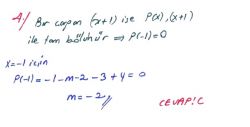 4) Bir çarpan (x+1) ise P(x), (x+1)
ile tam bölünür ⇒ P(-1)=0
x=-1 için
P(-1) = -1-m-2-3+4=0
m=-2,,
CEVAP: C